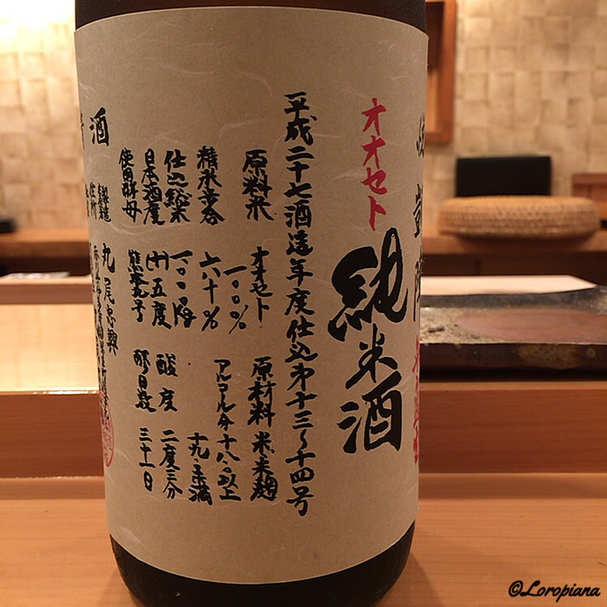 オオセト
純米酒
平成二十七酒造年度仕込第十三〜十四号
原料米 オオセト 一〇〇%
精米歩合 六十%
仕込総米 一〇〇〇kg
日本酒度 (+)五度
使用酵母 熊本九号
原材料 米・米麹
アルコール分 十八・〇以上
十九・〇未満
酸度 二度三分
醪日数 三十一日
丸尾忠興
酒
©Loropiana